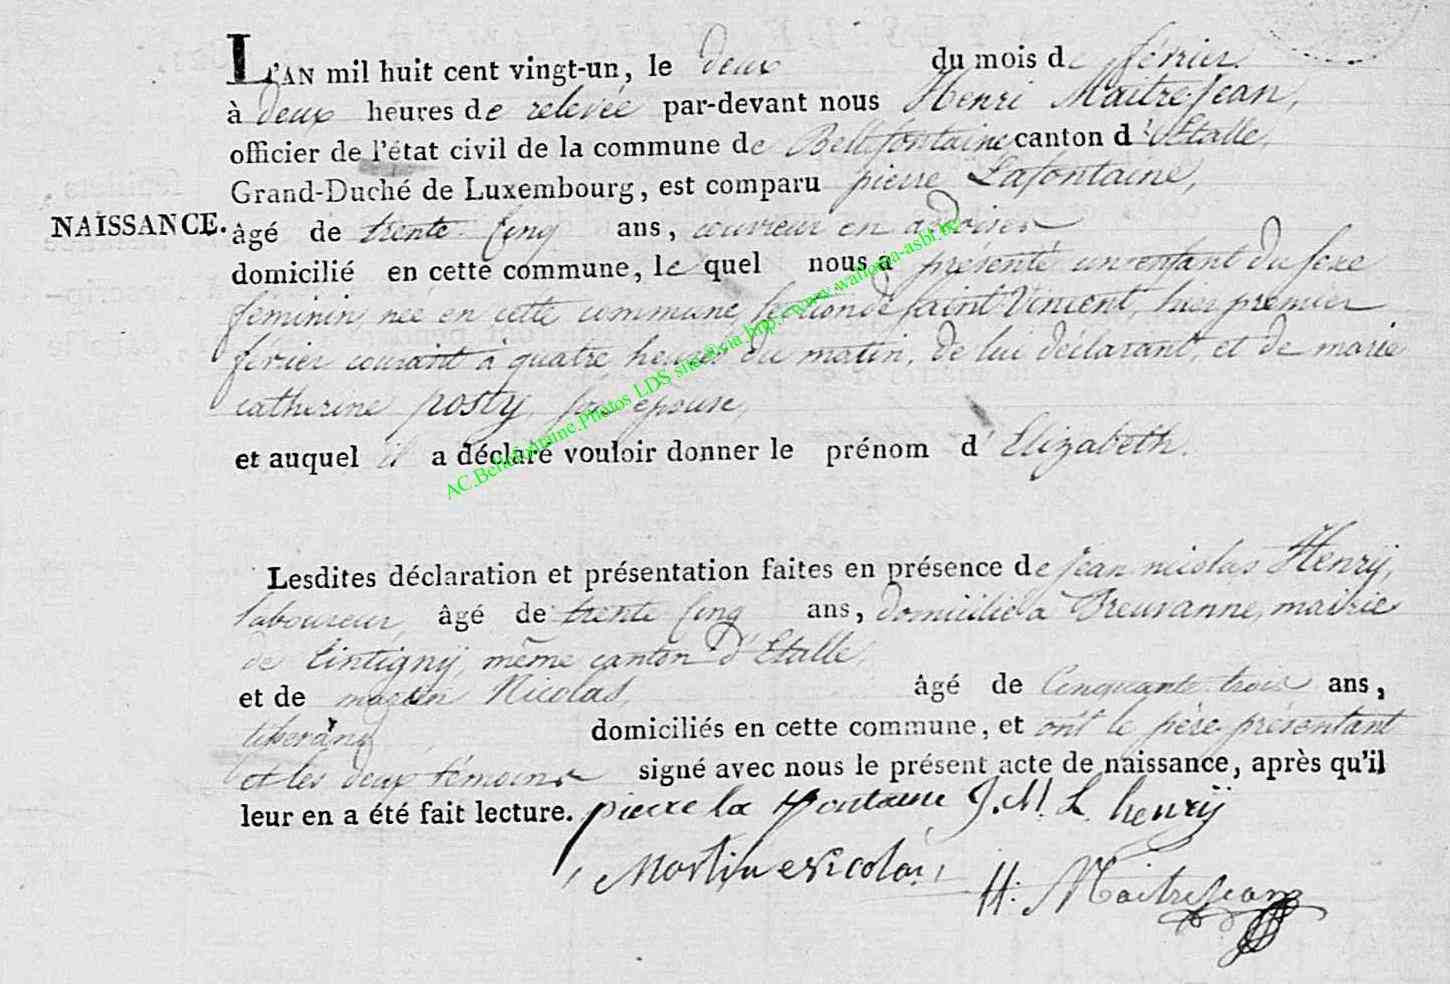 L'AN mil huit cent vingt-un, le deux du mois de février
à deux heures de relevée par-devant nous Henri Maitrejean,
officier de l'état civil de la commune de Bellefontaine canton d'Etalle,
Grand-Duché de Luxembourg, est comparu pierre Lafontaine,
NAISSANCE. âgé de trente cinq ans, couvreur en ardoises
domicilié en cette commune, le quel nous a présenté un enfant du sexe
féminin, née en cette commune, section de saint Vincent, hier premier
février courant à quatre heures du matin, de lui déclarant, et de marie
catherine posty, son épouse,
et auquel il a déclaré vouloir donner le prénom d'Elizabeth.
Lesdites déclaration et présentation faites en présence de jean nicolas Henrÿ,
laboureur, âgé de trente cinq ans, domicilié à Breuvanne, mairie
de tintignÿ, même canton d'Etalle,
et de martin Nicolas, âgé de Cinquante trois ans,
domiciliés en cette commune, et ont le père présentant
et les deux témoins signé avec nous le présent acte de naissance, après qu'il
leur en a été fait lecture. pierre la fontaine J. N. L. henrÿ
Martin Nicolas H. Maitrejean
AC.Bellefontaine.Photos LDS sneldvia http://www.wallonia-asbl.be